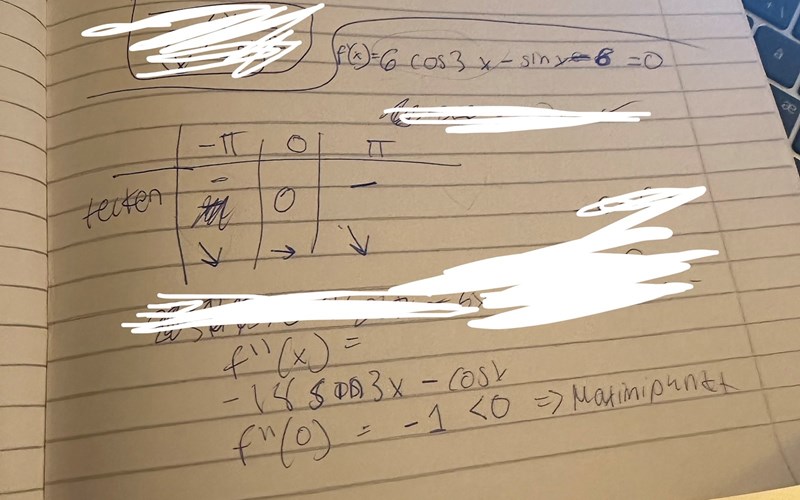 f'(x)=6 cos3x-sinx-6=0
-π 0 π
tecken - 0 -
↘ → ↘
f''(x) =
-18 sin3x - cosx
f''(0) = -1 <0 => Maximipunkt